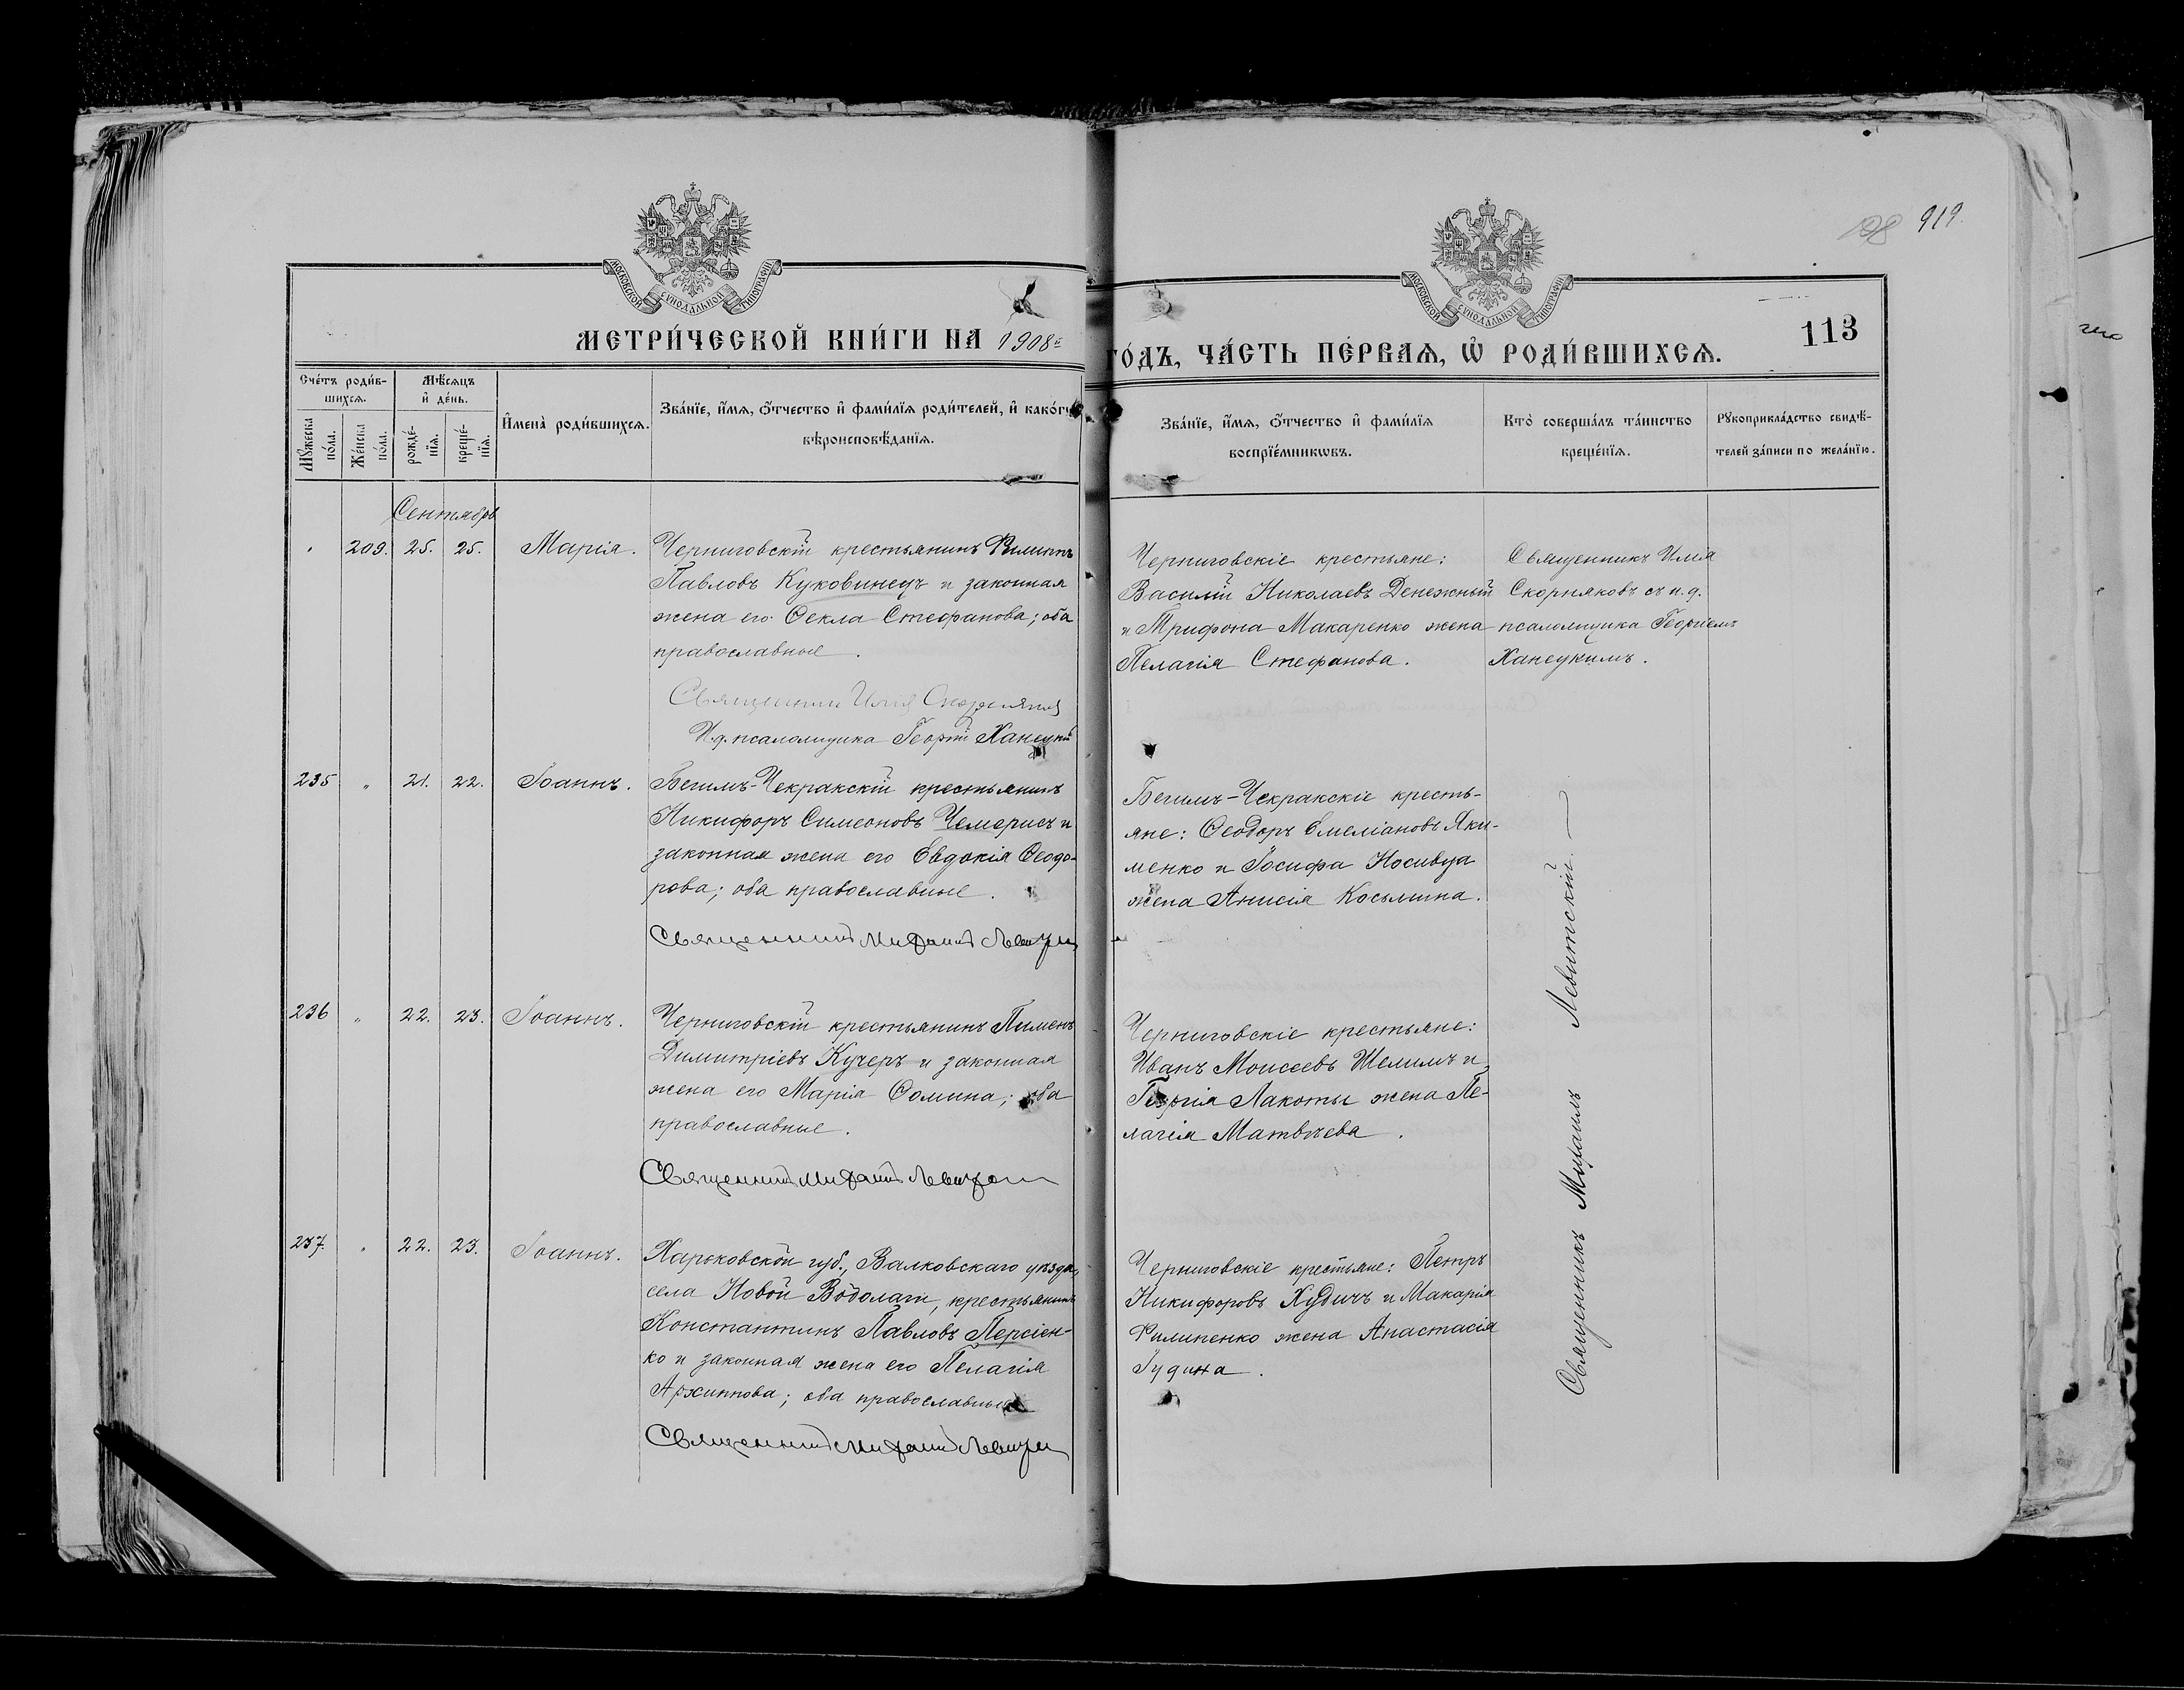 198 919.
МОСКОВСКОЙ СѴНОДАЛЬНОЙ ТИПОГРАФІИ
МОСКОВСКОЙ СѴНОДАЛЬНОЙ ТИПОГРАФІИ
МЕТРИ́ЧЕСКОЙ КНИ́ГИ НА 1908й
ГО́ДЪ, ЧА́СТЬ ПЕ́РВАѦ, Ѡ҆ РОДИ́ВШИХСѦ.
113
Сче́тъ роди́в-
шихсѧ.
Мꙋжеска по́ла.
Же́нска по́ла.
Мѣ́сѧцъ
и҆ де́нь.
рожде́-
нїѧ.
креще́-
нїѧ.
И҆мена̀ роди́вшихсѧ.
Зва́нїе, и҆́мѧ, ѻ҆́тчество и҆ фами́лїѧ роди́телей, и҆ како́гѡ
вѣроисповѣ́данїѧ.
Зва́нїе, и҆́мѧ, ѻ҆́тчество и҆ фами́лїѧ
воспрїе́мникѡвъ.
Кто̀ соверша́лъ та́инство
креще́нїѧ.
Рꙋкоприкла́дство свидѣ́-
телей за́писи по жела́нїю.
Сентябрь
209. 25. 25. Марія.
Черниговскій крестьянинъ Филиппъ
Павловъ Куковинецъ и законная
жена его Ѳекла Стефанова; оба
православные.
Священникъ Илія Скорняковъ
И.д. псаломщика Георгій Ханецкій
Черниговскіе крестьяне:
Василій Николаевъ Денежный
и Трифона Макаренко жена
Пелагія Стефанова.
Священникъ Илія
Скорняковъ съ и.д.
псаломщика Георгіемъ
Ханецкимъ.
235 " 21. 22. Іоаннъ.
Бегимъ-Чекракскій крестьянинъ
Никифоръ Симеоновъ Чемерисъ и
законная жена его Евдокія Ѳеодо-
рова; оба православные.
Священникъ Михаилъ Левитскій
Бегимъ-Чекракскіе кресть-
яне: Ѳеодоръ Емеліановъ Яки-
менко и Іосифа Носивца
жена Анисія Косьмина.
236 " 22. 23. Іоаннъ.
Черниговскій крестьянинъ Пименъ
Димитріевъ Кучеръ и законная
жена его Марія Ѳомина; оба
православные.
Священникъ Михаилъ Левитскій
Черниговскіе крестьяне:
Иванъ Моисеевъ Шелимъ и
Георгія Лакоты жена Пе-
лагія Матвѣева.
237. " 22. 23. Іоаннъ.
Харьковской губ., Валковскаго уѣзда,
села Новой Водолаги, крестьянинъ
Константинъ Павловъ Персіен-
ко и законная жена его Пелагія
Архиппова; оба православные
Священникъ Михаилъ Левитскій
Черниговскіе крестьяне: Петръ
Никифоровъ Худичъ и Макарія
Филипенко жена Анастасія
Іудина.
Священникъ Михаилъ Левитскій.